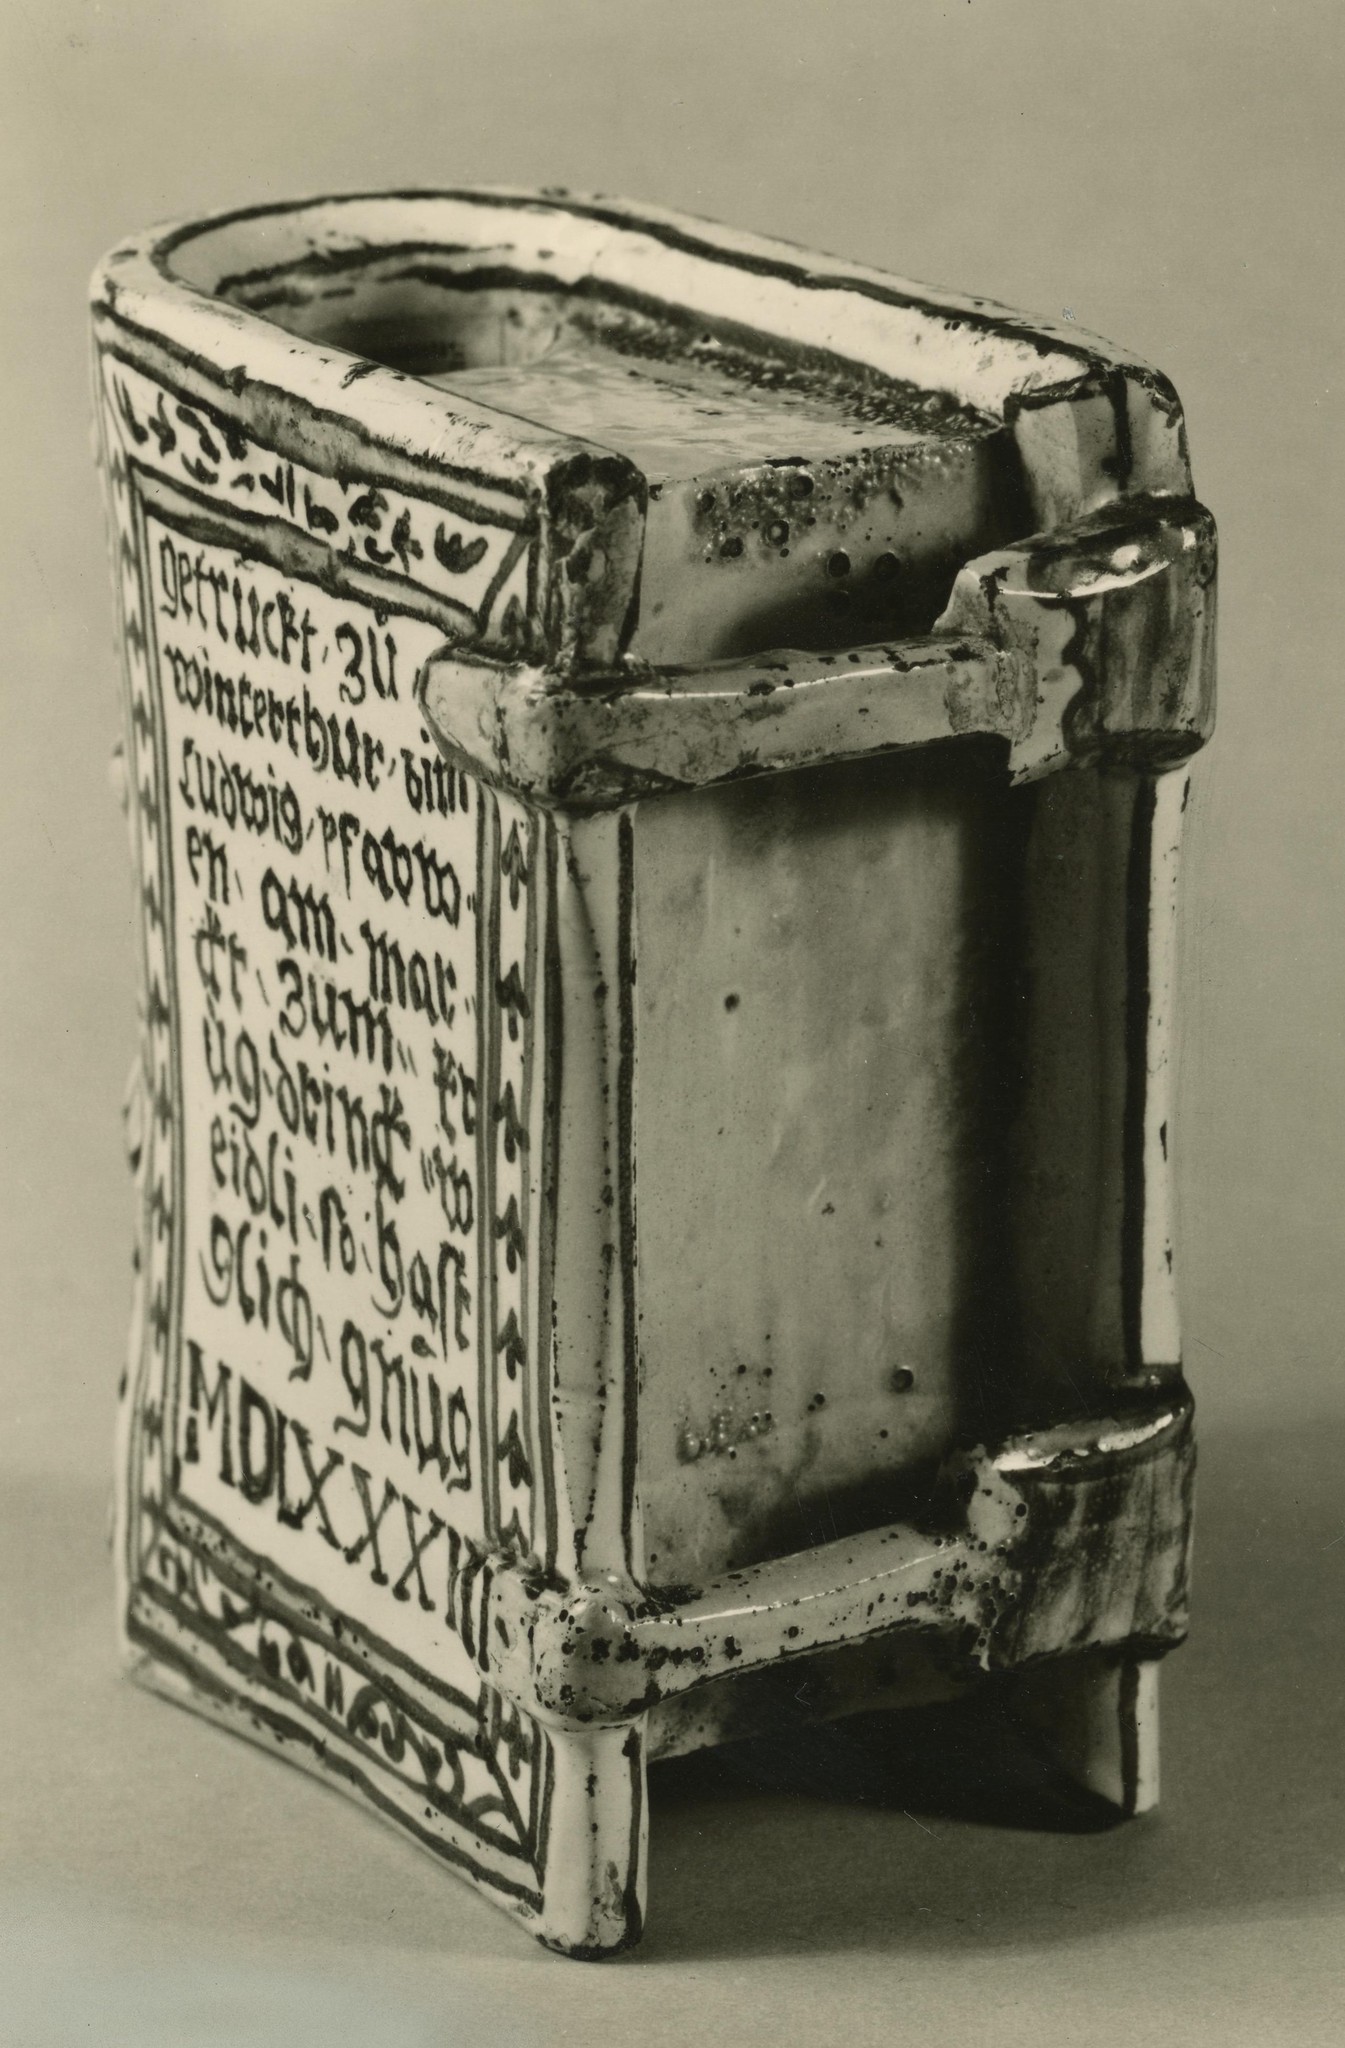 getrückt · zů ·
winterthur · bim
ludwig · pfavw ·
en · am · mar ·
ckt · zum ·· kr
ůg · drinck ·· w
eidli · so · hast
glich · gnůg
MDLXXXIII